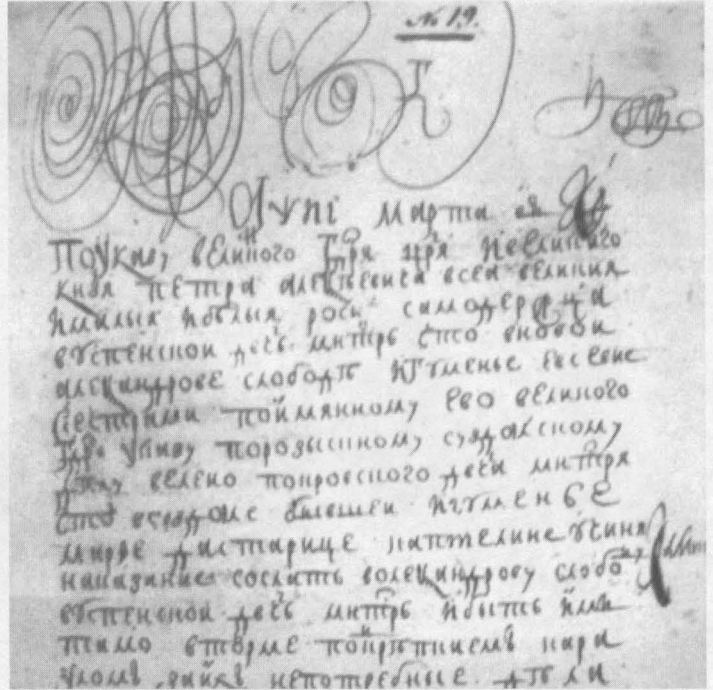 № 19.
҂аѱиі марта
По указу великого гдря цря и великого
кнзя петра алеѯеевича всеа великия
и малыя и белыя росиі самодержца
в успенской двчь мнтрь что в новой
алеѯандрове слободе игуменье евсевие
с сестрами по имянному ево великого
гдря указу по розыскному суздалскому
делу велено покровского двча мнтря
что в суздале бывшей игуменье
марѳе да старице каптелине учиня
наказание сослать в олеѯандрову слободу
в успенской двчь мнтрь и быть им
тамо в тюрме под крепким кара
улом за их непотребные дела